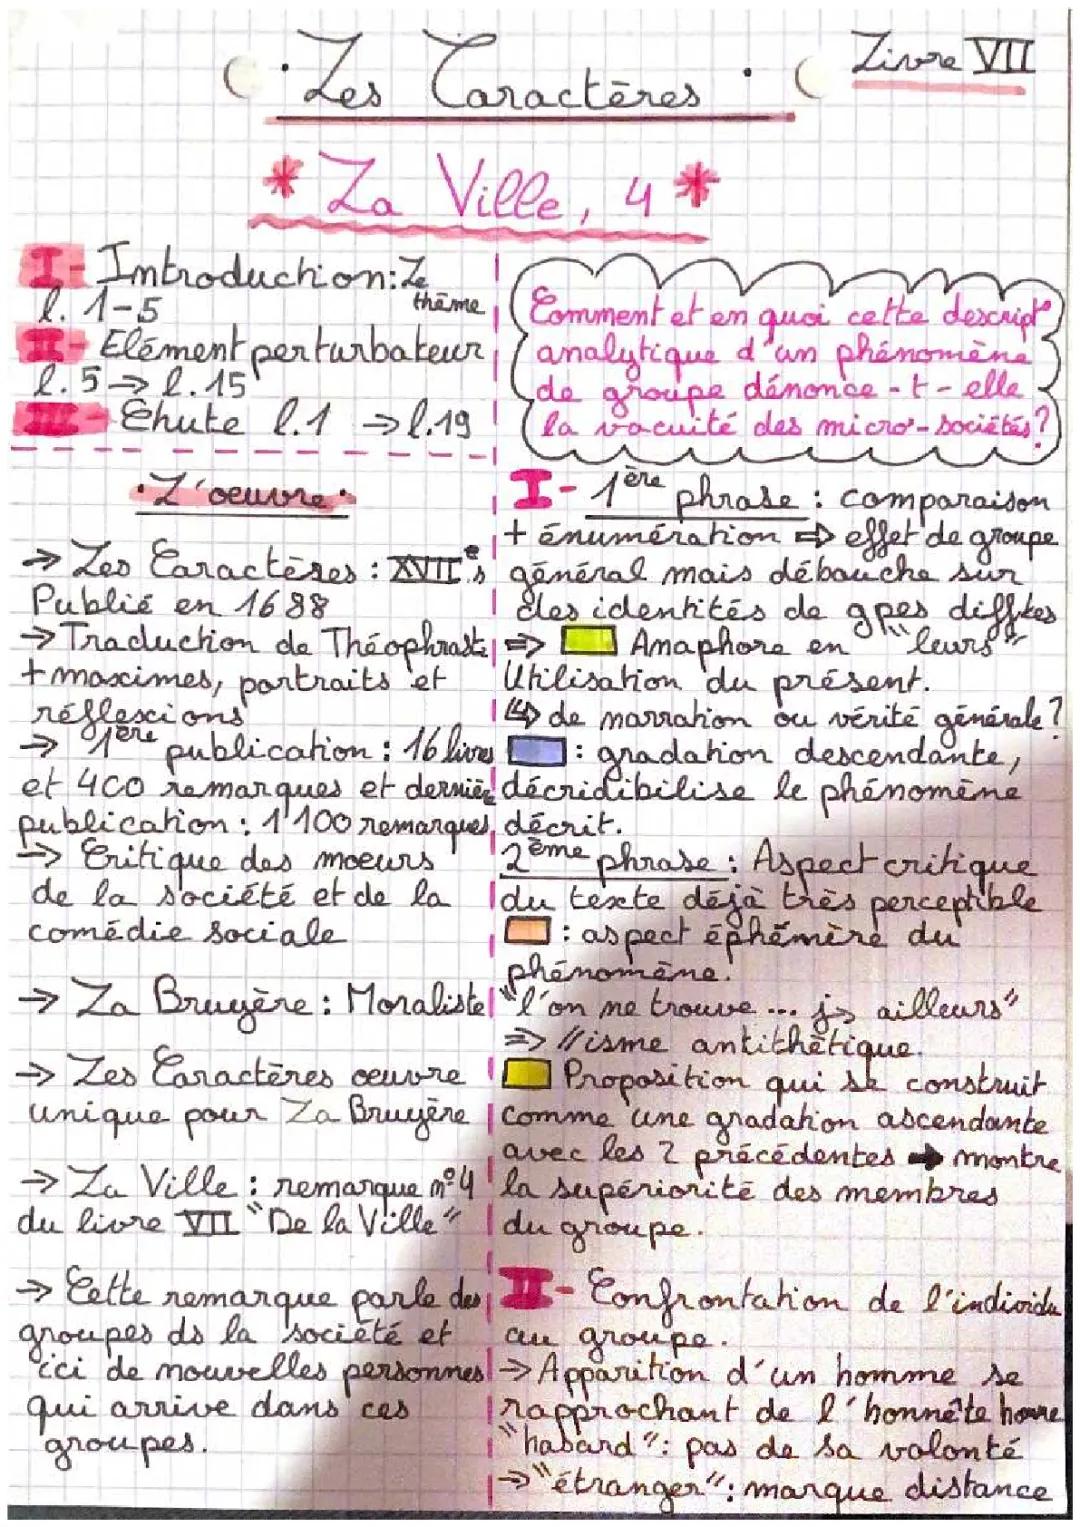 Les Caractères
Livre VII
* La Ville, 4 *
I- Introduction: Le
l. 1-5 thème
II- Elément perturbateur
l. 5 → l. 15
III- Chute l.1 → l.19
Comment et en quoi cette descript°
analytique d'un phénomène
de groupe dénonce-t-elle
la vacuité des micro-sociétés?
• L'oeuvre •
→ Les Caractères : XVIIe s
Publié en 1688
→ Traduction de Théophraste
+ maximes, portraits et
réflexions
→ 1ère publication : 16 livres
et 400 remarques et dernière
publication : 1'100 remarques
→ Critique des moeurs
de la société et de la
comédie sociale
→ La Bruyère : Moraliste
→ Les Caractères oeuvre
unique pour La Bruyère
→ La Ville : remarque n°4
du livre VII "De la Ville"
→ Cette remarque parle des
groupes ds la société et
ici de nouvelles personnes
qui arrive dans ces
groupes.
I- 1ère phrase : comparaison
+ énumération ⇒ effet de groupe
général mais débouche sur
des identités de gpes difftes
⇒ Anaphore en "leurs"
Utilisation du présent.
↳ de narration ou vérité générale?
: gradation descendante,
décridibilise le phénomène
décrit.
2ème phrase : Aspect critique
du texte déjà très perceptible
: aspect éphémère du
phénomène.
"l'on ne trouve ... ailleurs"
⇒ //isme antithétique.
Proposition qui se construit
comme une gradation ascendante
avec les 2 précédentes → montre
la supériorité des membres
du groupe.
II- Confrontation de l'individu
au groupe.
→ Apparition d'un homme se
rapprochant de l'honnête homme
"hasard": pas de sa volonté
→ "étranger": marque distance